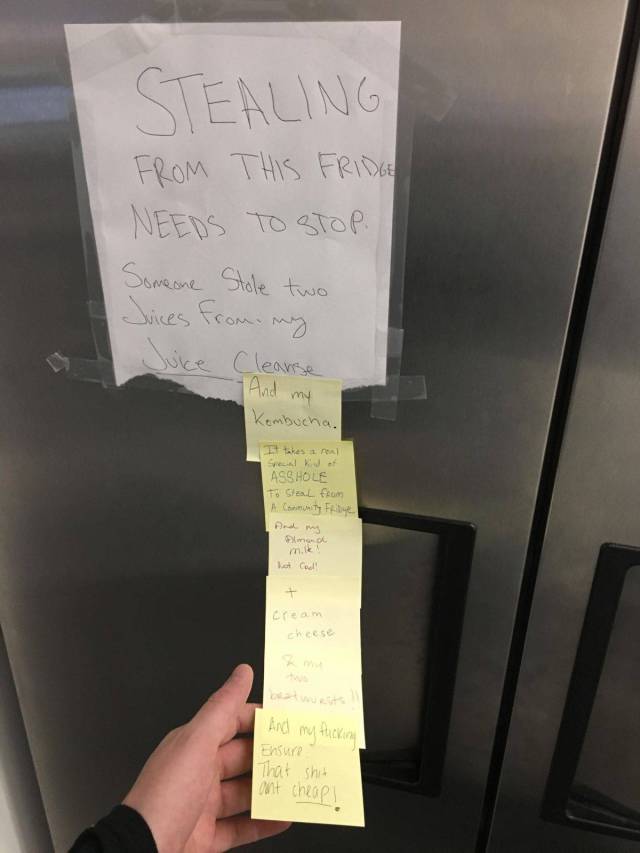 STEALING
FROM THIS FRIDGE
NEEDS TO STOP.
Someone Stole two
Juices From my
Juice Cleanse
And my
Kombucha.
It takes a real
Special Kind of
ASSHOLE
To Steal from
A Community Fridge
And my
Almond
milk!
Not Cool!
+
cream
cheese
& my
two
bratwursts!!
And my fucking
Ensure.
That shit
aint cheap!